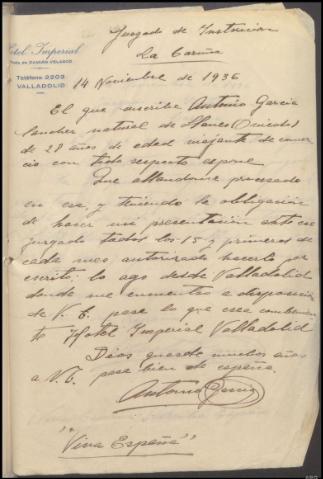 Hotel Imperial
Vda. de RAMÓN VELASCO
Teléfono 2203
VALLADOLID
Juzgado de Instrucion
La Coruña
14 Noviembre de 1936
El que suscribe Antonio Garcia
Sanchez natural de Llanes (Oviedo)
de 28 años de edad viajante de comer
cio con todo respeto espone
Que allandome procesado
en esa, y teniendo la obligacion
de hacer mi presentación ante ese
juzgado todos los 15 y primeros de
cada mes autorizado hacerlo por
escrito, lo ago desde Valladolid
donde me encuentro a disposición
de V. E. para lo que crea
Hotel Imperial Valladolid
Dios guarde muchos años
a V. E. para bien de españa.
Antonio Garcia
"Viva España"